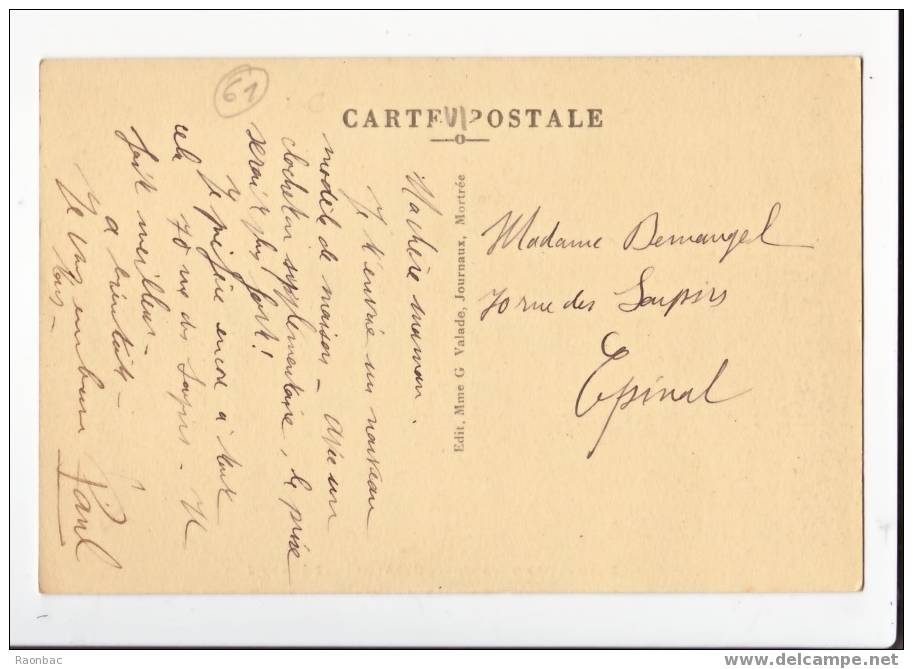 61
CARTE POSTALE
Ma chère maman.
Je t'envoie un nouveau
modèle de maison – Avec un
clocheton supplémentaire, la prise
serait plus forte!
Je préfère encore à tout
cela 70 rue des Soupirs – Il
fait meilleur –
à bientôt –
Je vous embrasse
tous –
Paul
Edit. Mme G Valade, Journaux, Mortrée
Madame Demangel
70 rue des Soupirs
Epinal
Raonbac
delcampe.net